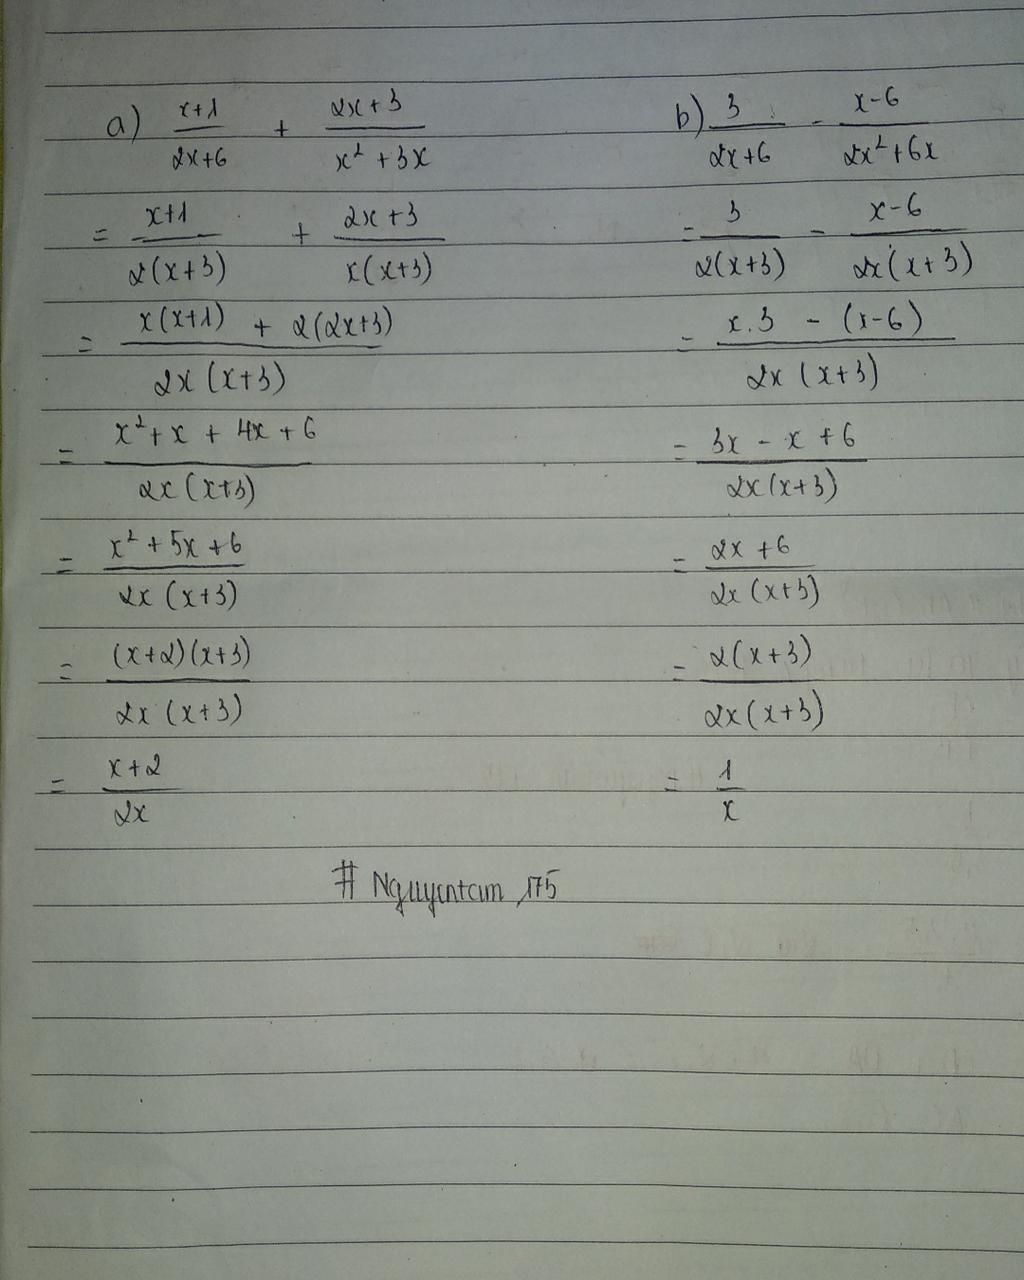 a) (x+1)/(2x+6) + (2x+3)/(x²+3x)
= (x+1)/(2(x+3)) + (2x+3)/(x(x+3))
= (x(x+1) + 2(2x+3))/(2x(x+3))
= (x²+x+4x+6)/(2x(x+3))
= (x²+5x+6)/(2x(x+3))
= ((x+2)(x+3))/(2x(x+3))
= (x+2)/(2x)
b) 3/(2x+6) - (x-6)/(2x²+6x)
= 3/(2(x+3)) - (x-6)/(2x(x+3))
= (x.3 - (x-6))/(2x(x+3))
= (3x-x+6)/(2x(x+3))
= (2x+6)/(2x(x+3))
= (2(x+3))/(2x(x+3))
= 1/x
# Nguyentam 175